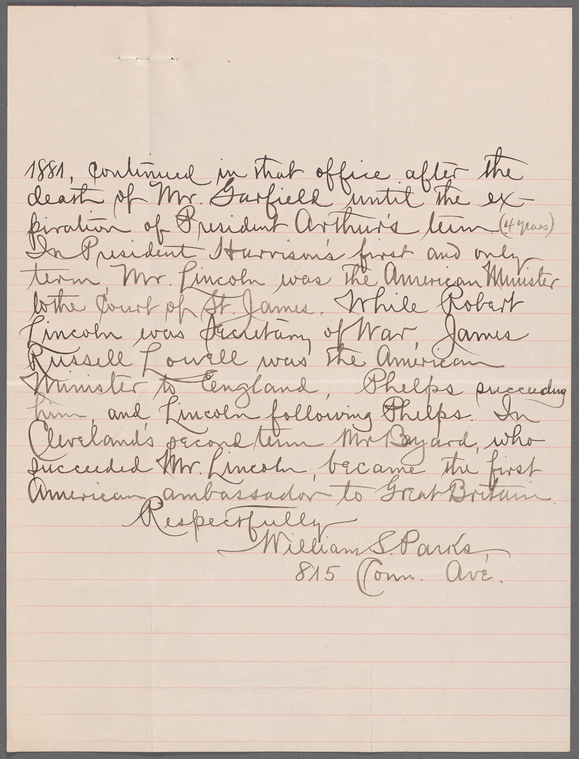 1881, continued in that office after the
death of Mr. Garfield until the ex-
piration of President Arthur's term (4 years)
In President Harrison's first and only
term, Mr. Lincoln was the American Minister
to the Court of St. James. While Robert
Lincoln was Secretary of War, James
Russell Lowell was the American
Minister to England, Phelps succeeding
him, and Lincoln following Phelps. In
Cleveland's second term Mr Bayard, who
succeeded Mr. Lincoln, became the first
American ambassador to Great Britain.
Respectfully
William S. Parks,
815 Conn. Ave.